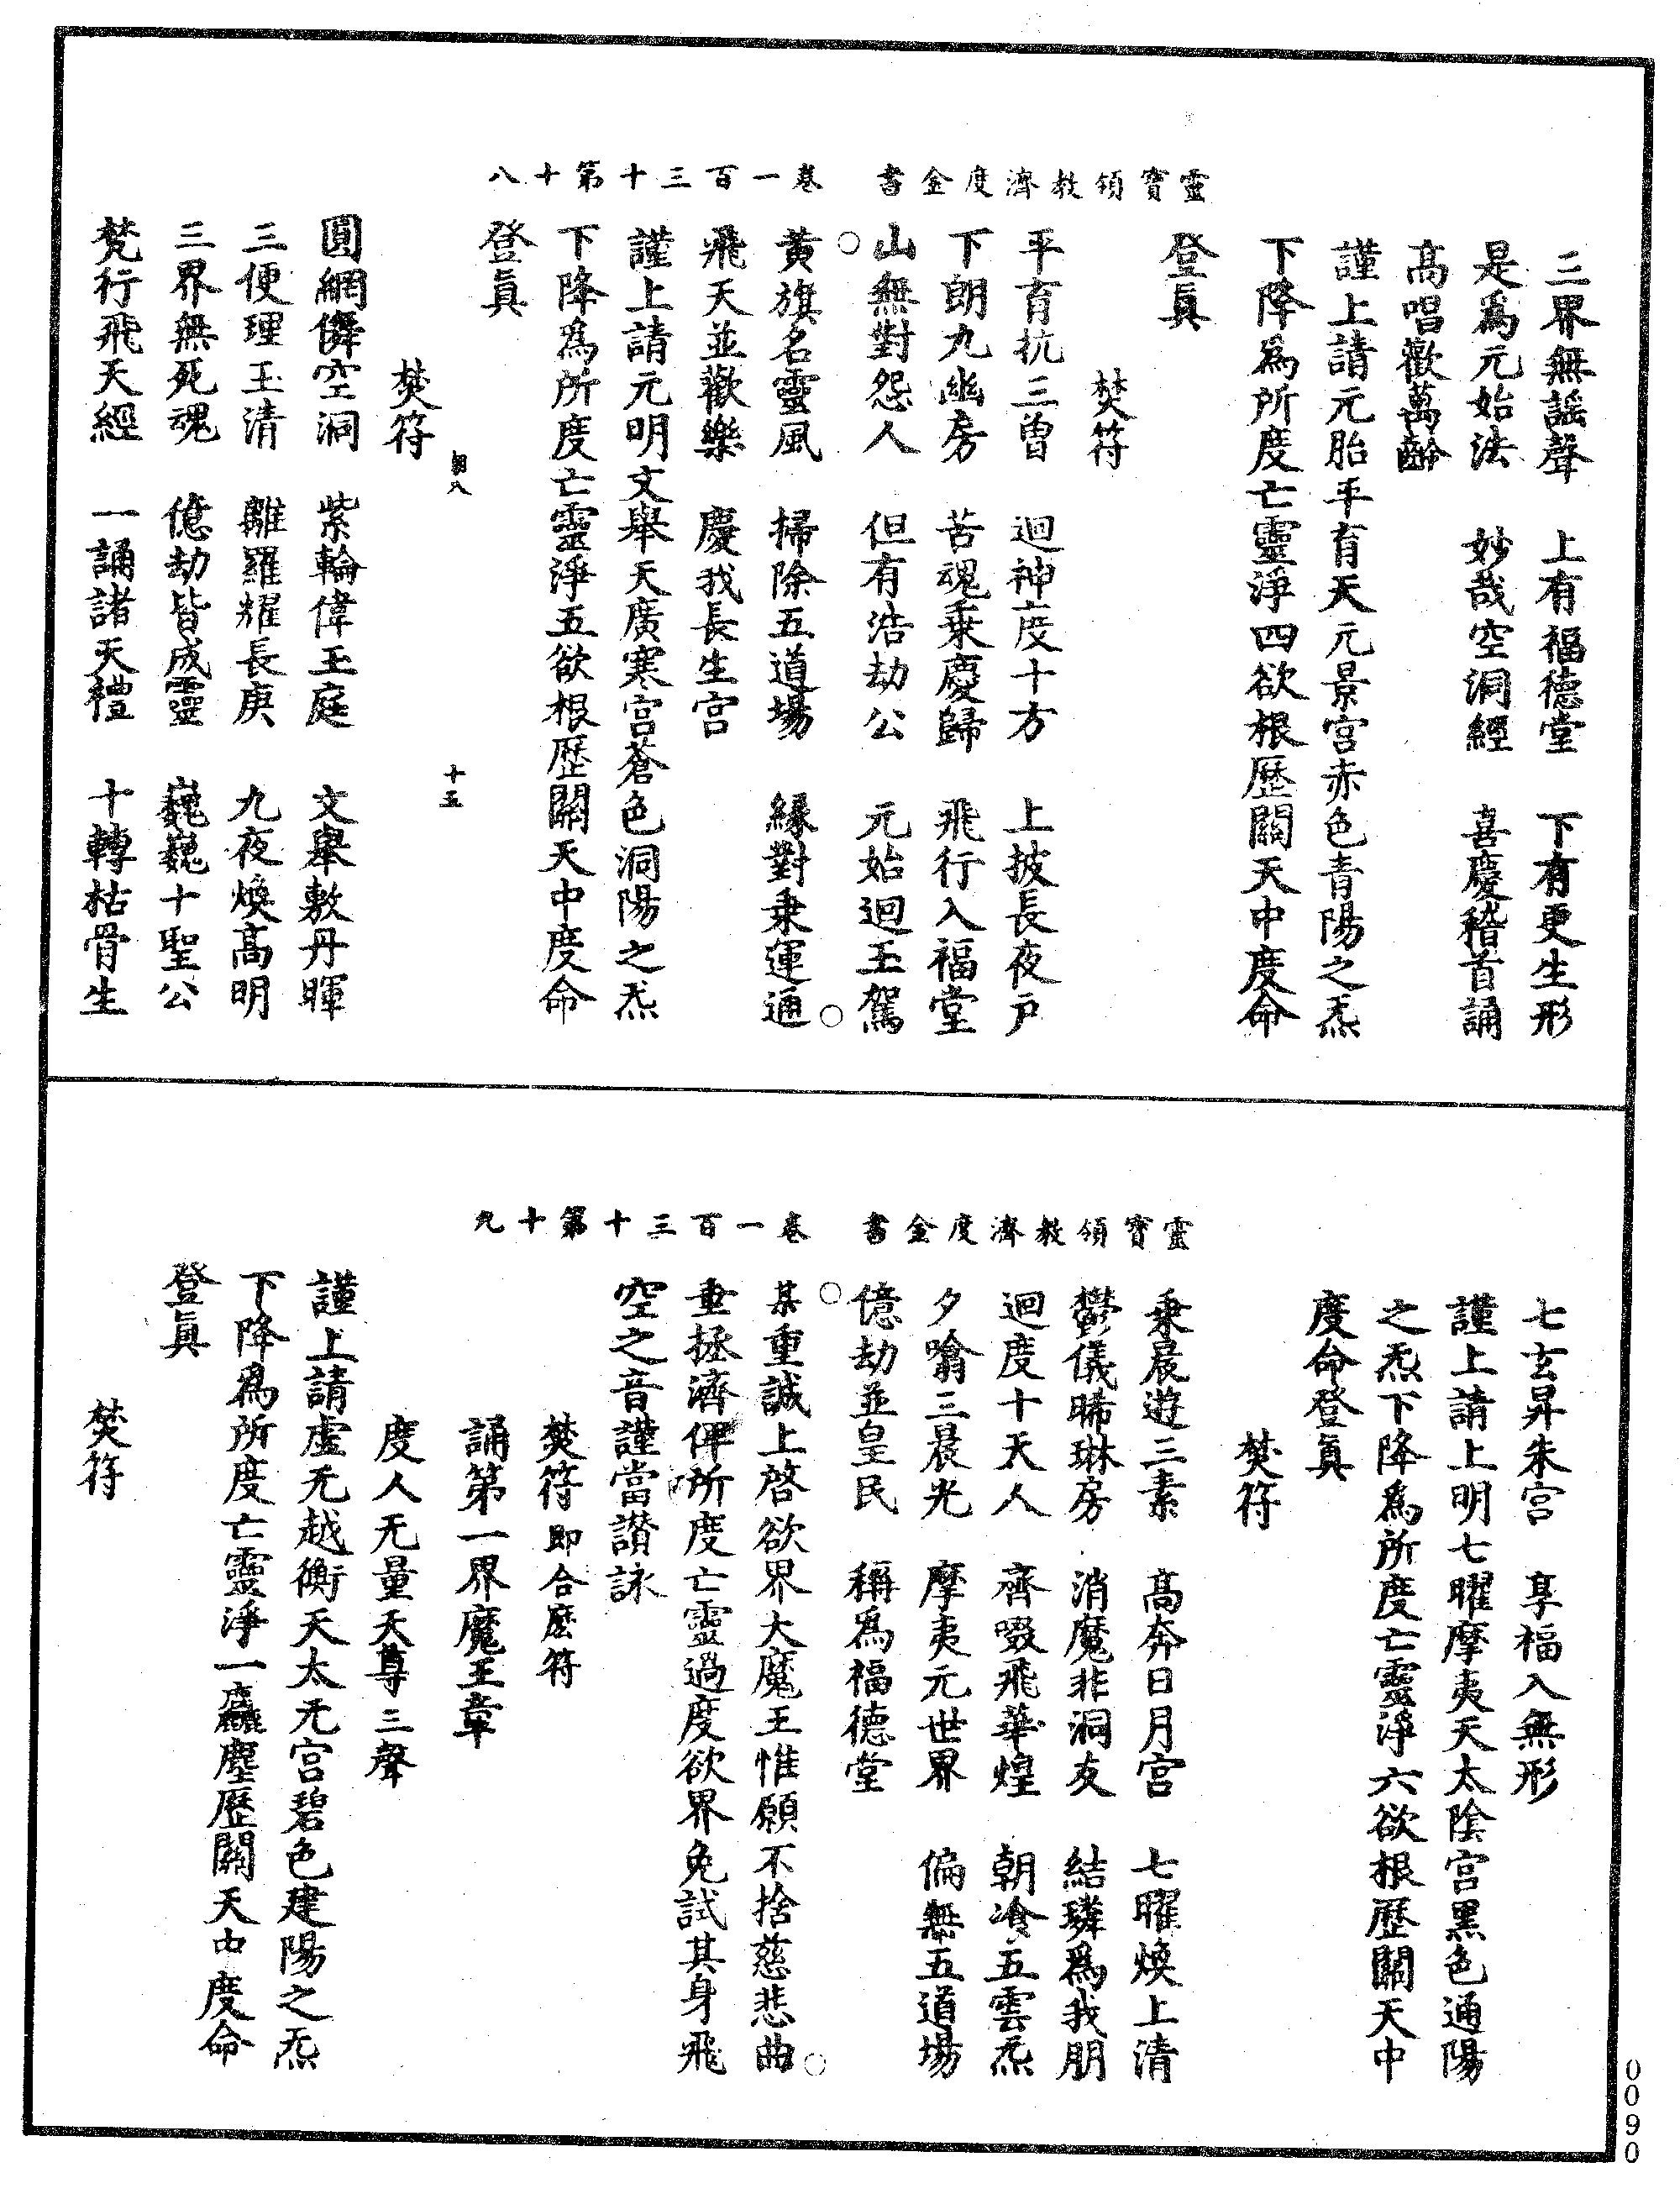 靈寶領教濟度金書　卷一百三十第十八
三界無謠聲　上有福德堂　下有更生形
是爲元始法　妙哉空洞經　喜慶稽首誦
高唱歡萬齡
謹上請元胎平育天元景宮赤色青陽之炁
下降爲所度亡靈淨四欲根歷關天中度命
登眞
焚符
平育抗三曾　迴神度十方　上披長夜戶
下朗九幽房　苦魂乗慶歸　飛行入福堂
山無對怨人　但有浩劫公　元始迴玉駕
黃旗名靈風　掃除五道場　緣對乗運通
飛天並歡樂　慶我長生宮
謹上請元明文舉天廣寒宮蒼色洞陽之炁
下降爲所度亡靈淨五欲根歷關天中度命
登眞
八　十五
焚符
圓網儛空洞　紫輪偉玉庭　文舉敷丹暉
三便理玉清　離羅耀長庚　九夜煥高明
三界無死魂　億劫皆成靈　巍巍十聖公
梵行飛天經　一誦諸天禮　十轉枯骨生
靈寶領教濟度金書　卷一百三十第十九
七玄昇朱宮　享福入無形
謹上請上明七曜摩夷天太陰宮黑色通陽
之炁下降爲所度亡靈淨六欲根歷關天中
度命登眞
焚符
乗晨遊三素　高奔日月宮　七曜煥上清
鬱儀晞琳房　消魔非洞友　結璘爲我朋
迴度十天人　齊啜飛華煌　朝飡五雲炁
夕噏三晨光　摩夷元世界　偏無五道場
億劫並皇民　稱爲福德堂
某重誠上啓欲界大魔王惟願不捨慈悲曲
垂拯濟俾所度亡靈過度欲界免試其身飛
空之音謹當讃詠
焚符即合麽符
誦第一界魔王章
度人无量天尊三聲
謹上請虛无越衡天太无宮碧色建陽之炁
下降爲所度亡靈淨一麤塵歷關天中度命
登眞
焚符
0090